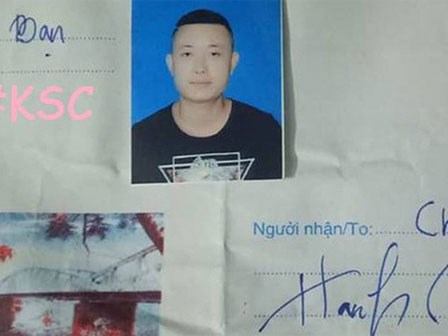 Đan
#KSC
Người nhận/To: Ch
Hanh